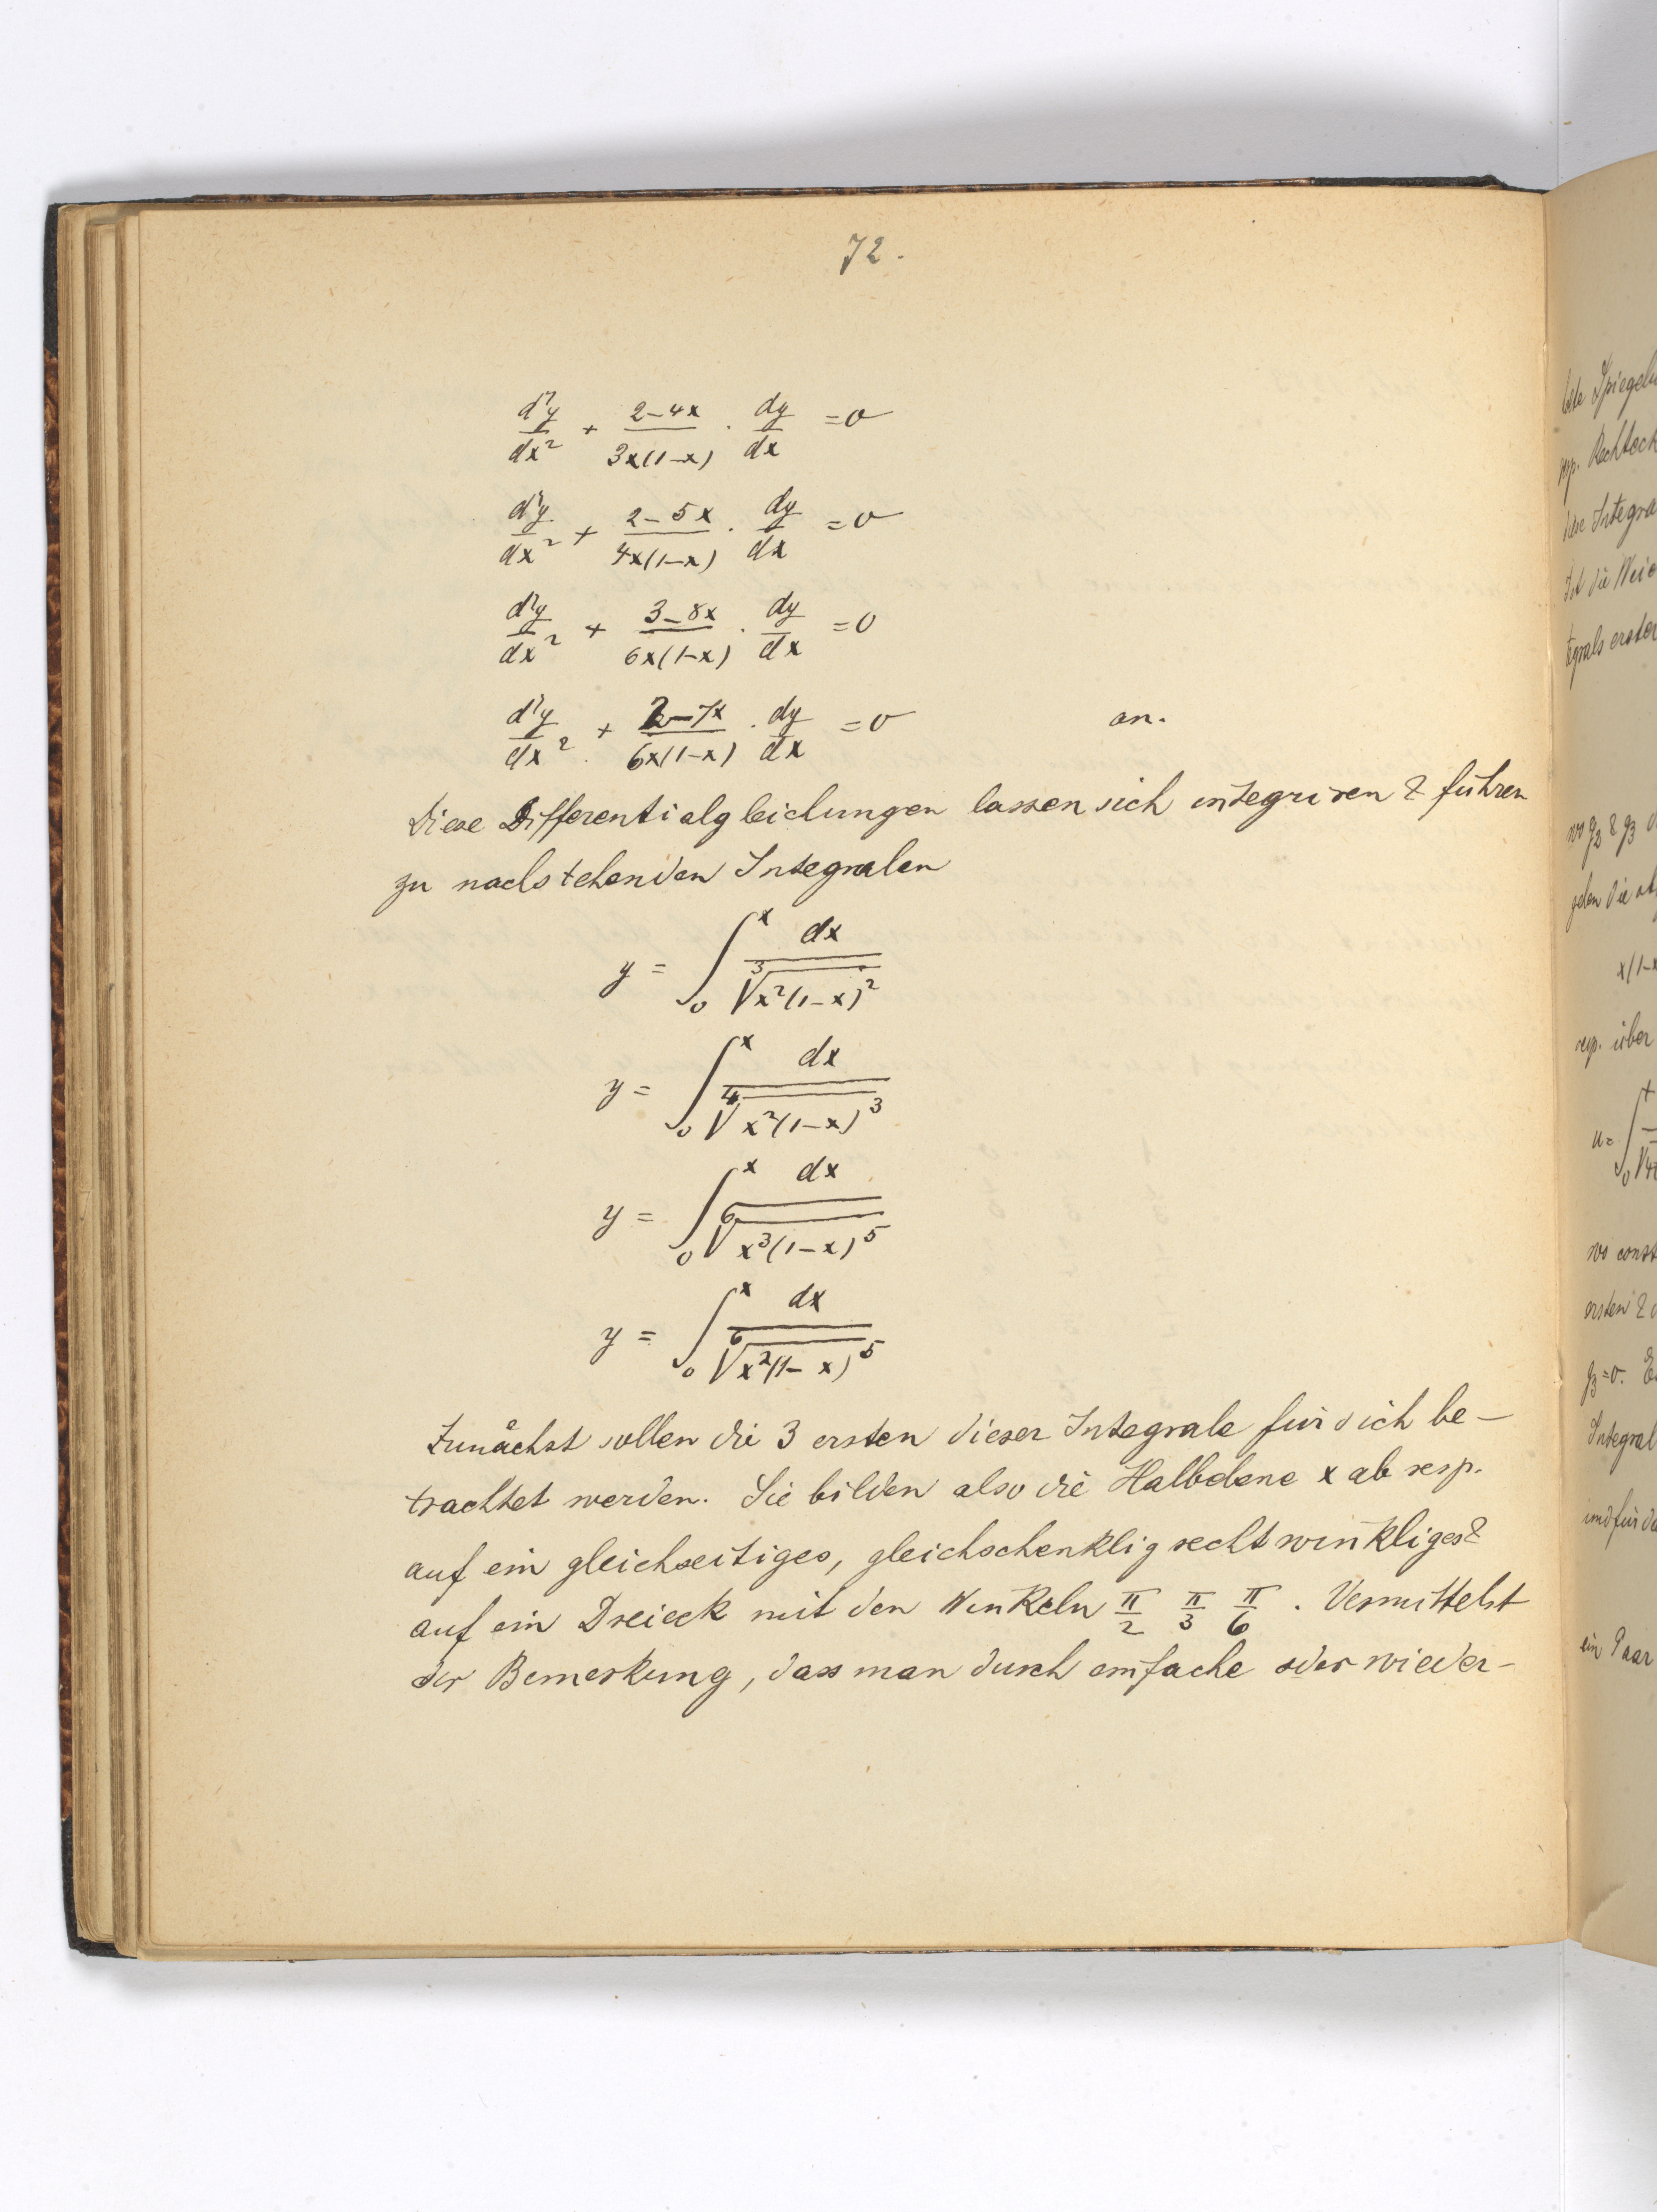 72.
d²y/dx² + 2-4x/3x(1-x) . dy/dx = 0
d²y/dx² + 2-5x/4x(1-x) . dy/dx = 0
d²y/dx² + 3-8x/6x(1-x) . dy/dx = 0
d²y/dx² + 2-7x/6x(1-x) . dy/dx = 0 an.
Diese Differentialgleichungen lassen sich integriren & führen
zu nachstehenden Integralen
y = ∫₀ˣ dx/∛(x²(1-x)²)
y = ∫₀ˣ dx/∜(x²(1-x)³)
y = ∫₀ˣ dx/⁶√(x³(1-x)⁵)
y = ∫₀ˣ dx/⁶√(x²(1-x)⁵)
Zunächst sollen die 3 ersten dieser Integrale für sich be-
trachtet werden. Sie bilden also die Halbebene x ab resp.
auf ein gleichseitiges, gleichschenklig rechtwinkliges &
auf ein Dreieck mit den Winkeln π/2 π/3 π/6. Vermittelst
der Bemerkung, dass man durch einfache oder wieder-
Spiegelu
resp. Rechteck
Integra
Ist die
tegrals erster
wo g₂ & g₃
die
x(1-x
resp. über
u =
wo const
ersten &
g₃=0.
Integral
und für
ein Paar